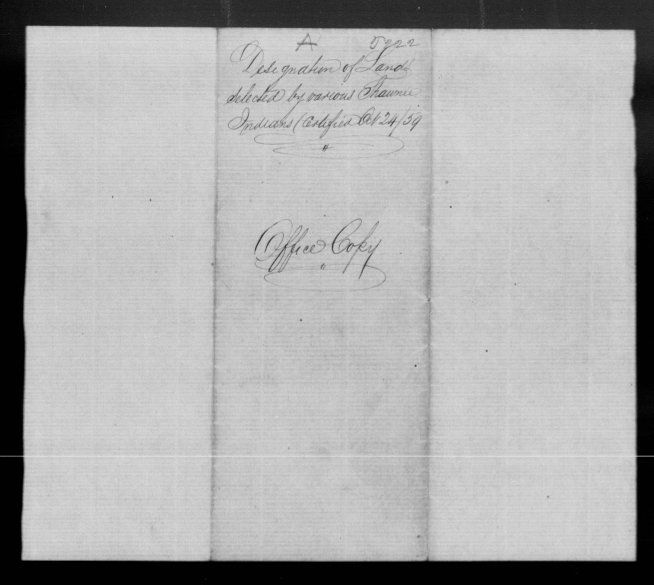 A 5222
Designation of Land
selected by various Shawnee
Indians (Certified Oct 24/59
"
Office Copy
"